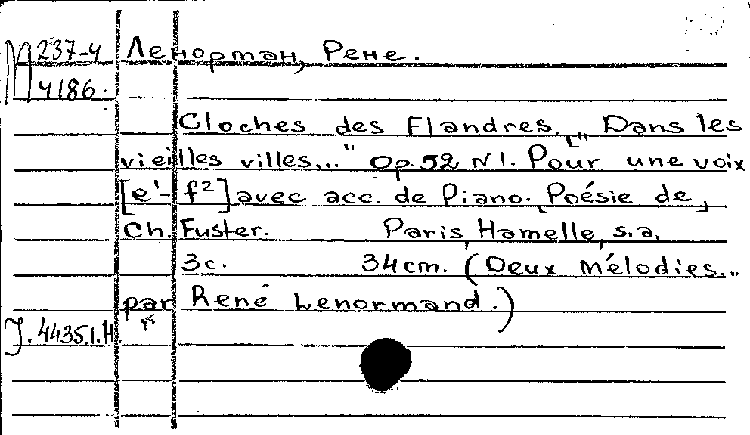 М 237-4 Ленорман, Рене.
4186.
Cloches des Flandres. „Dans les
vieilles villes..." Op. 52 N 1. Pour une voix
[e¹-f²] avec acc. de Piano. Poésie de
Ch. Fuster. Paris, Hamelle, s.a.
3c. 34cm. (Deux mélodies...
par René Lenormand.)
J. 4435.I.H.